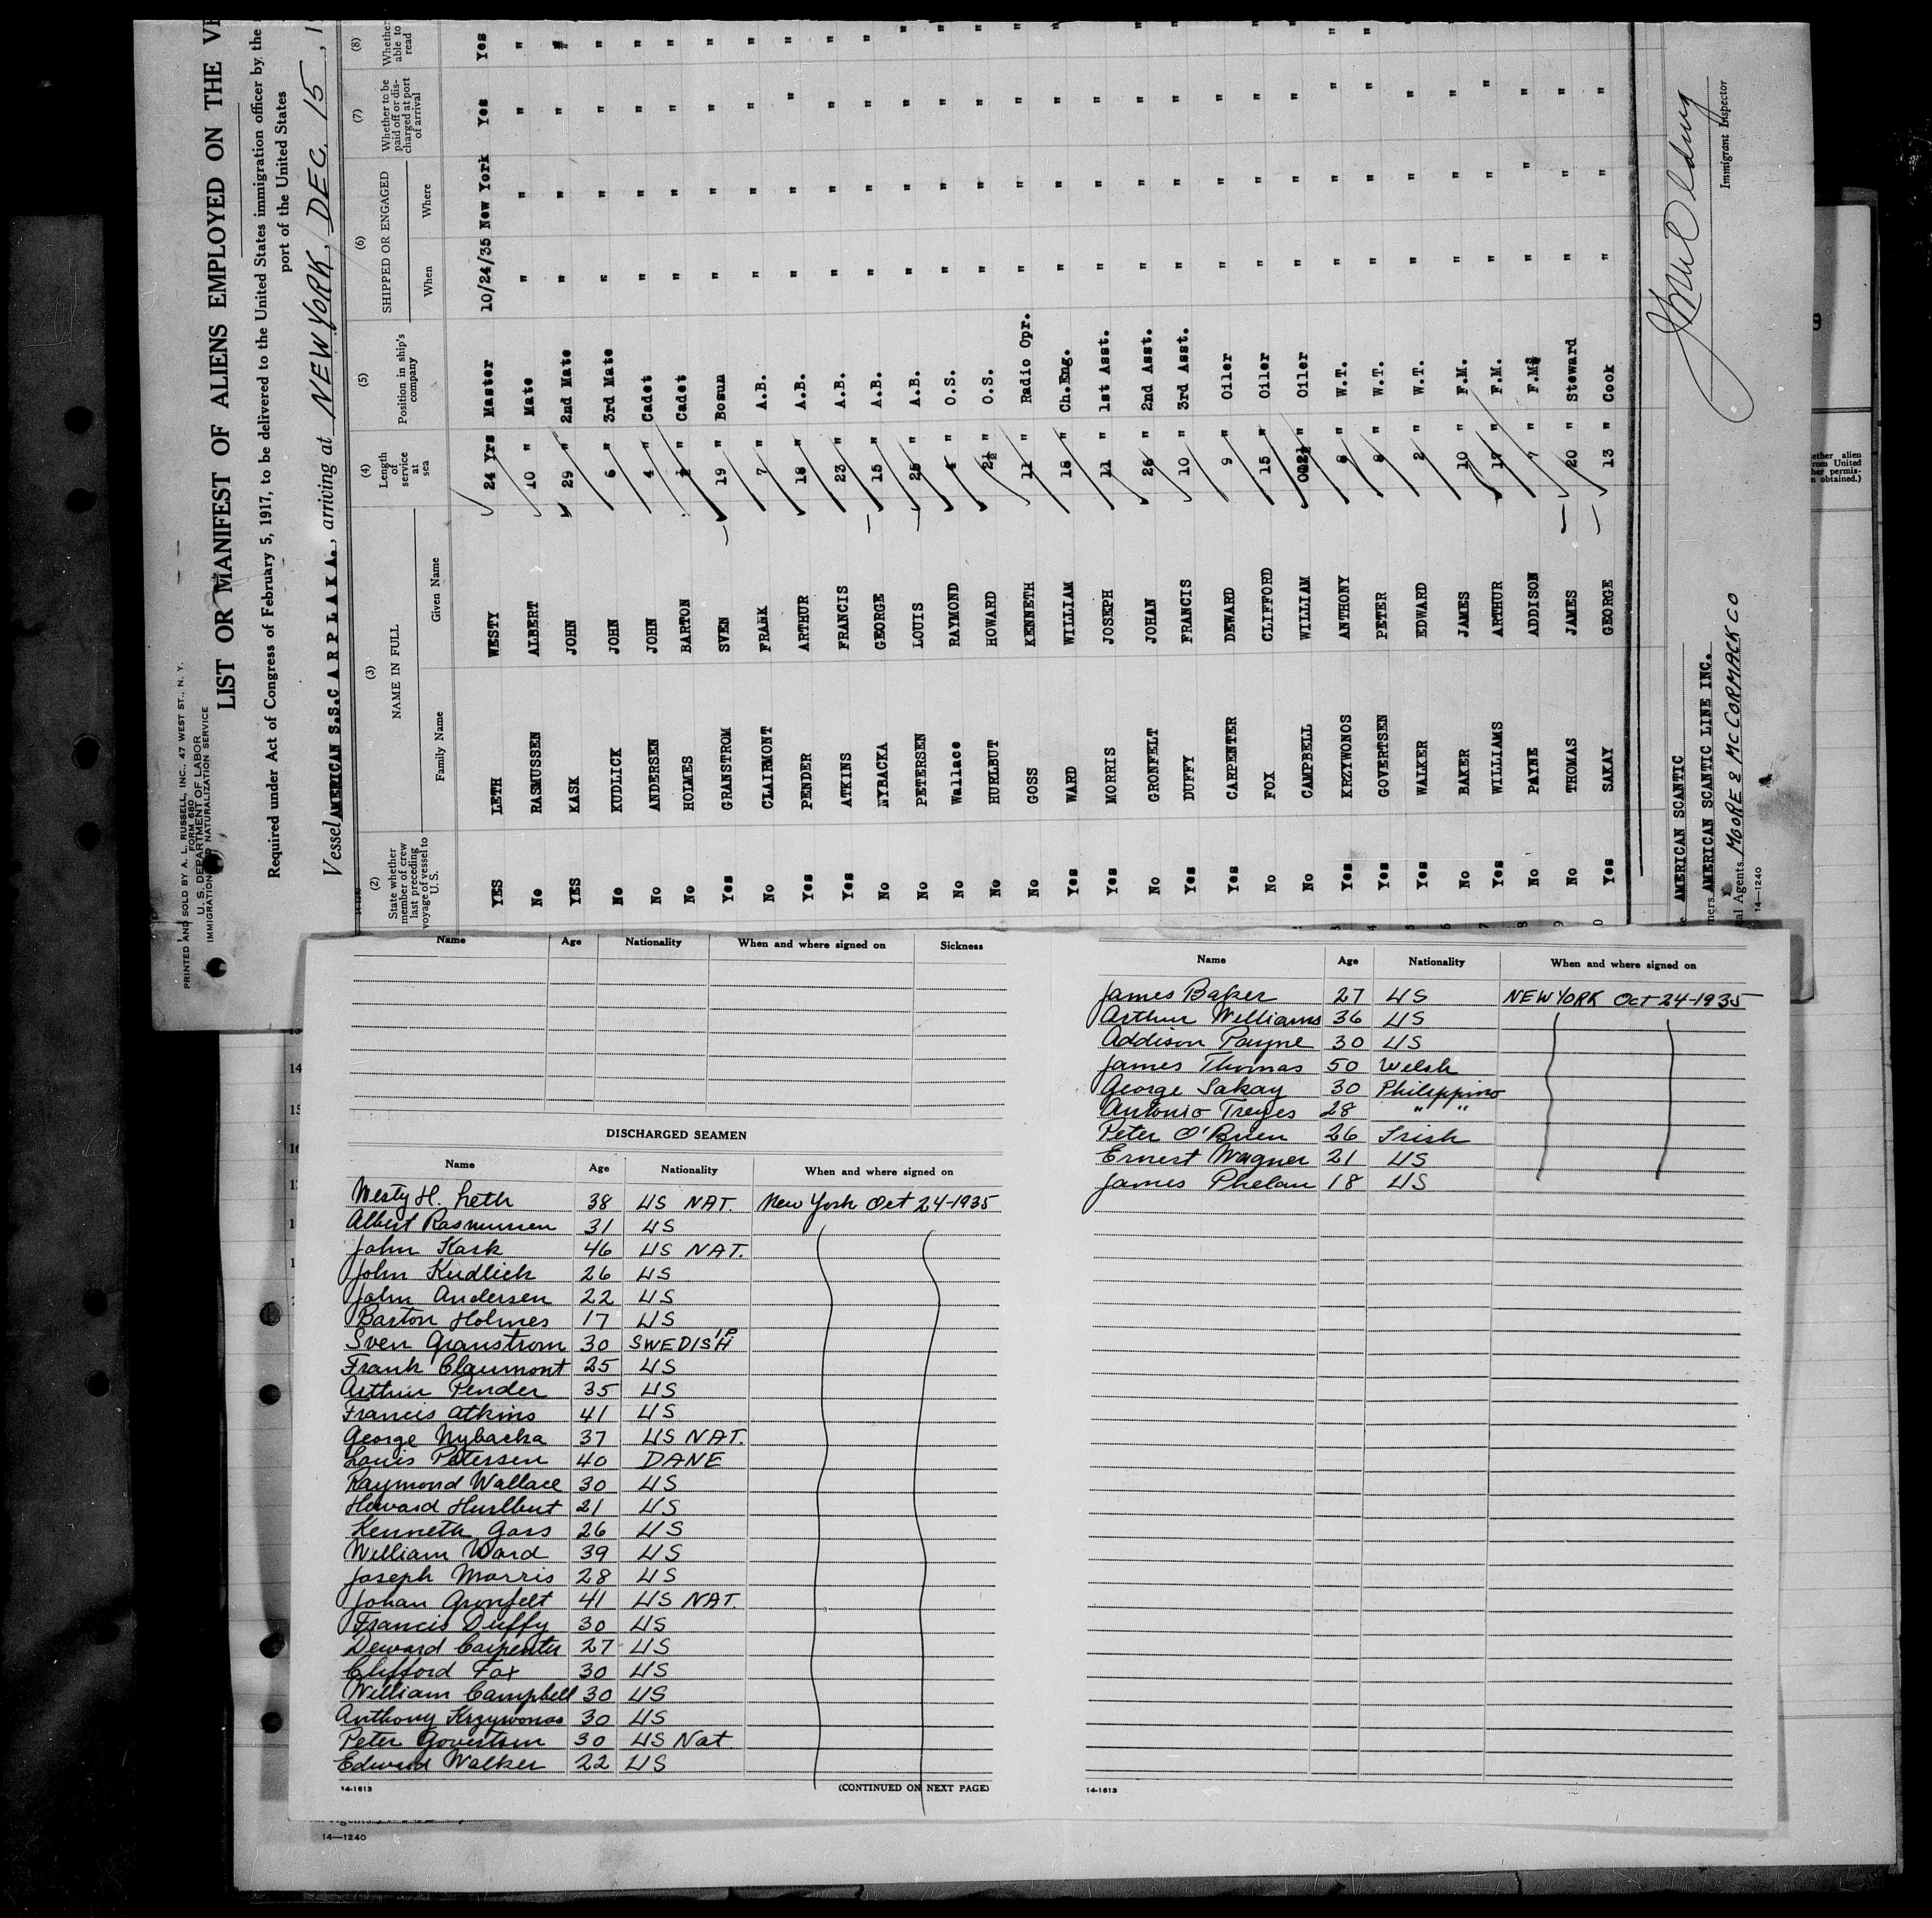 PRINTED AND SOLD BY A. L. RUSSELL, INC., 47 WEST ST., N. Y.
FORM 680
U. S. DEPARTMENT OF LABOR
IMMIGRATION AND NATURALIZATION SERVICE
LIST OR MANIFEST OF ALIENS EMPLOYED ON THE
Required under Act of Congress of February 5, 1917, to be delivered to the United States immigration officer by the
port of the United States
Vessel AMERICAN S.S.C A R P L A K A., arriving at NEW YORK, DEC. 15, 1
(2) (3) (4) (5) (6) (7) (8)
State whether member of crew last preceding voyage of vessel to U. S. NAME IN FULL Length of service at sea Position in ship's company SHIPPED OR ENGAGED Whether to be paid off or discharged at port of arrival Whether able to read
Family Name Given Name When Where
YES LETH WESTY 24 Yrs Master 10/24/35 New York Yes Yes
No RASMUSSEN ALBERT 10 " Mate " " " "
YES KASK JOHN 29 " 2nd Mate " " " "
No KUDLICK JOHN 6 " 3rd Mate " " " "
No ANDERSEN JOHN 4 " Cadet " " " "
No HOLMES BARTON ½ " Cadet " " " "
Yes GRANSTROM SVEN 19 " Bosun " " " "
No CLAIRMONT FRANK 7 " A.B. " " " "
Yes PENDER ARTHUR 18 " A.B. " " " "
Yes ATKINS FRANCIS 23 " A.B. " " " "
No NYBACKA GEORGE 15 " A.B. " " " "
No PETERSEN LOUIS 25 " A.B. " " " "
No Wallace RAYMOND 4 " O.S. " " " "
No HURLBUT HOWARD 2½ " O.S. " " " "
No GOSS KENNETH 11 " Radio Opr. " " " "
Yes WARD WILLIAM 18 " Ch.Eng. " " " "
Yes MORRIS JOSEPH 11 " 1st Asst. " " " "
No GRONFELT JOHAN 26 " 2nd Asst. " " " "
Yes DUFFY FRANCIS 10 " 3rd Asst. " " " "
Yes CARPENTER DEWARD 9 " Oiler " " " "
No FOX CLIFFORD 15 " Oiler " " " "
No CAMPBELL WILLIAM 2½ " Oiler " " " "
Yes KRZYWONOS ANTHONY 8 " W.T. " " " "
Yes GOVERTSEN PETER 8 " W.T. " " " "
Yes WALKER EDWARD 2 " W.T. " " "
No BAKER JAMES 10 " F.M. " " "
Yes WILLIAMS ARTHUR 17 " F.M. " " "
No PAYNE ADDISON 7 " F.M. " " "
No THOMAS JAMES 20 " Steward " " "
Yes SAKAY GEORGE 13 " Cook " " "
AMERICAN SCANTIC
AMERICAN SCANTIC LINE INC.
Agents MOORE & McCORMACK CO
14—1240
Immigrant Inspector
Name Age Nationality When and where signed on Sickness
DISCHARGED SEAMEN
Name Age Nationality When and where signed on
Westy H. Leth 38 US NAT. New York Oct 24-1935
Albert Rasmussen 31 US
John Kask 46 US NAT.
John Kudlich 26 US
John Andersen 22 US
Barton Holmes 17 US
Sven Granstrom 30 SWEDISH
Frank Clairmont 25 US
Arthur Pender 35 US
Francis Atkins 41 US
George Nybacka 37 US NAT.
Louis Petersen 40 DANE
Raymond Wallace 30 US
Howard Hurlbut 21 US
Kenneth Goss 26 US
William Ward 39 US
Joseph Morris 28 US
Johan Gronfelt 41 US NAT.
Francis Duffy 30 US
Deward Carpenter 27 US
Clifford Fox 30 US
William Campbell 30 US
Anthony Krzywonos 30 US
Peter Govertsen 30 US Nat
Edward Walker 22 US
14-1613 (CONTINUED ON NEXT PAGE)
Name Age Nationality When and where signed on
James Baker 27 US NEW YORK Oct 24-1935
Arthur Williams 36 US
Addison Payne 30 US
James Thomas 50 Welsh
George Sakay 30 Philippino
Antonio Treyes 28 " "
Peter O'Brien 26 Irish
Ernest Wagner 21 US
James Phelan 18 US
14-1613
14—1240